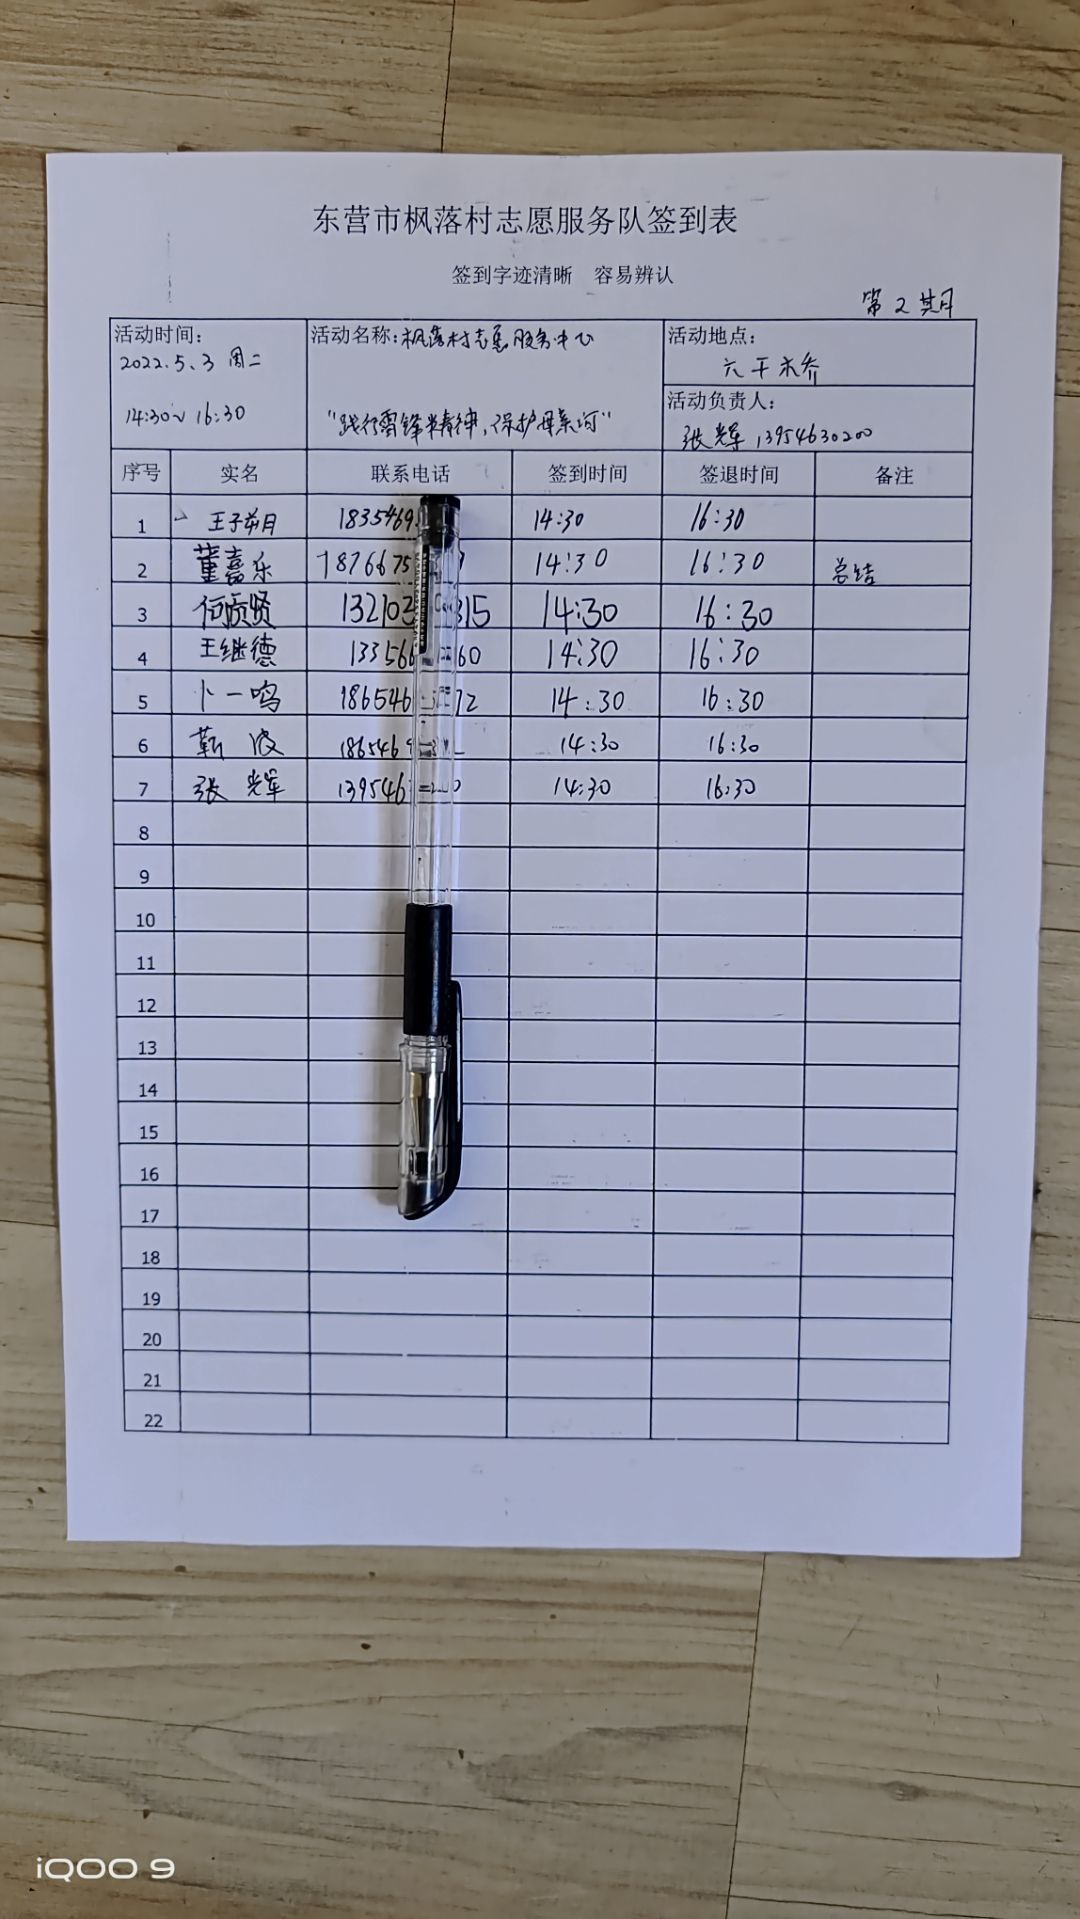 东营市枫落村志愿服务队签到表
签到字迹清晰 容易辨认
第2期
活动时间:
2022.5.3 周二
14:30~16:30
活动名称:枫落村志愿服务中心
"践行雷锋精神,保护母亲河"
活动地点:
六干桥
活动负责人:
张辉 13954630200
序号 实名 联系电话 签到时间 签退时间 备注
1 王子 1835469 14:30 16:30
2 董嘉乐 1876675 14:30 16:30 总结
3 何贤 132103 315 14:30 16:30
4 王继德 133566 60 14:30 16:30
5 卜一鸣 186546 72 14:30 16:30
6 靳波 1865469 14:30 16:30
7 张辉 1395463 14:30 16:30
8
9
10
11
12
13
14
15
16
17
18
19
20
21
22
iQOO 9